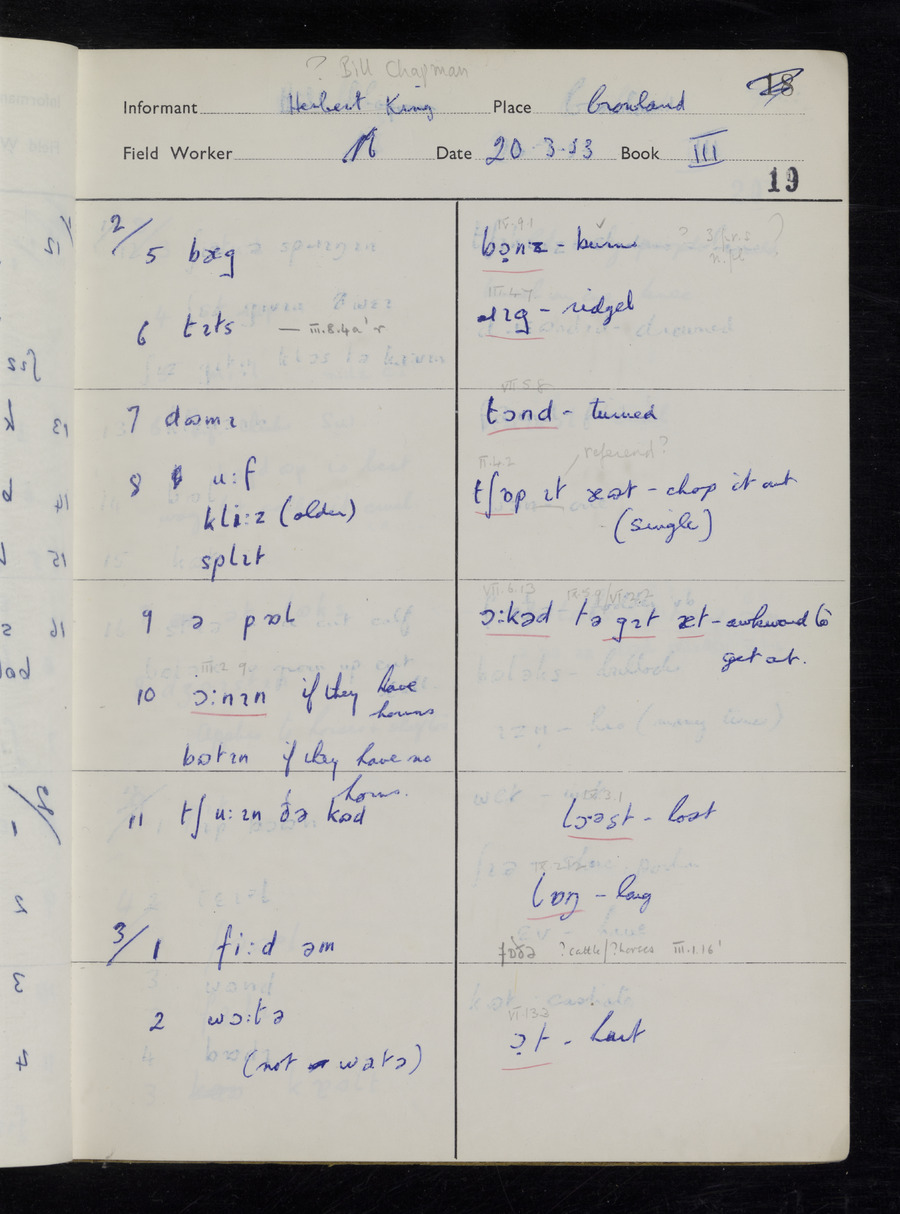 ? Bill Chapman
18
Informant Herbert King Place Crowland
Field Worker Date 20.3.53 Book III
19
2/5 bæg
6 tɪts — III.8.4a'r
7 dəəmɪ
8 u:f
kli:z (older)
splɪt
9 ə pəəl
III.2 9v
10 ɔ:nɪn if they have horns
bətɪn if they have no horns.
11 tʃu:ɪn ðə kəd
3/1 fi:d əm
2 wɔ:tə
(not watə)
IV.9.1
bə̣nz - burns
III.4.7
ɹɪg - ridgel
VII.5.8
tɔnd - turned
II.4.2 referend?
tʃɒp ɪt æət - chop it out
(single)
VII.6.13 IX.5.9/VI.3.2
ɔ:kəd tə gɪt æt - awkward to
get out.
lɔəst - lost
lɒŋ - long
fɒðə ?cattle/?horses III.1.16'
VI.13.3
ɔ̣t - hurt